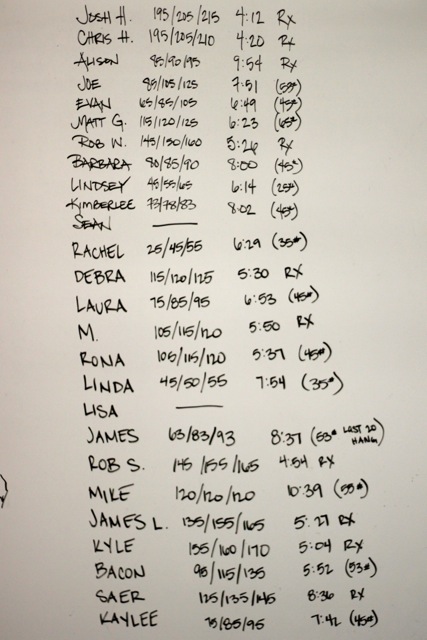 JOSH H. 195/205/215 4:12 Rx
CHRIS H. 195/205/210 4:20 Rx
ALISON 85/90/95 9:54 Rx
JOE 85/105/125 7:51 (55#)
EVAN 65/85/105 6:49 (45#)
MATT G. 115/120/125 6:23 (65#)
ROB W. 145/150/160 5:26 Rx
BARBARA 80/85/90 8:00 (45#)
LINDSEY 45/55/65 6:14 (25#)
KIMBERLEE 73/78/83 8:02 (45#)
SEAN ——
RACHEL 25/45/55 6:29 (35#)
DEBRA 115/120/125 5:30 RX
LAURA 75/85/95 6:53 (45#)
M. 105/115/120 5:50 RX
RONA 105/115/120 5:37 (45#)
LINDA 45/50/55 7:54 (35#)
LISA ——
JAMES 63/83/93 8:37 (53# LAST 20 HANG)
ROB S. 145/155/165 4:54 RX
MIKE 120/120/120 10:39 (55#)
JAMES L. 135/155/165 5:27 RX
KYLE 155/160/170 5:04 RX
BACON 95/115/135 5:52 (53#)
SAER 125/135/145 8:36 RX
KAYLEE 75/85/95 7:42 (45#)